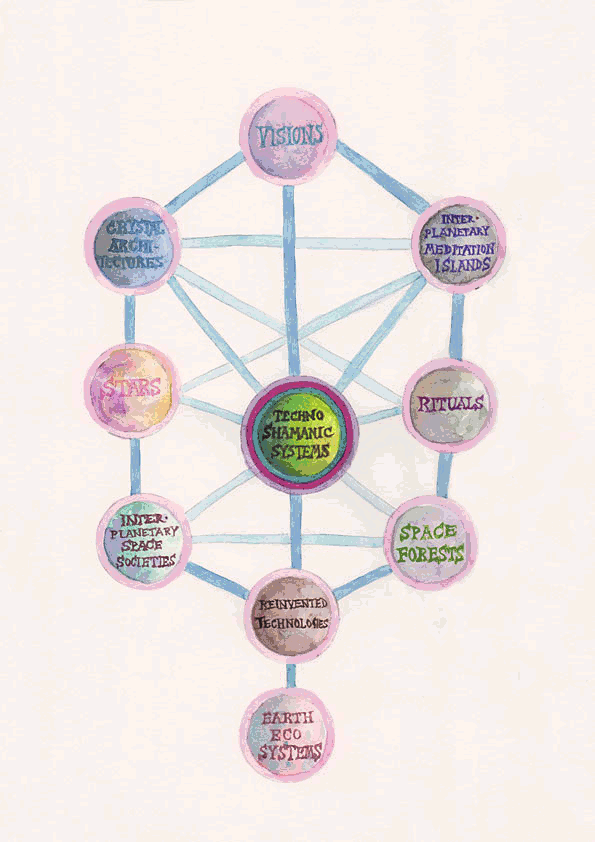 VISIONS
CRYSTAL
ARCHI-
TECTURES
INTER-
PLANETARY
MEDITATION
ISLANDS
STARS
RITUALS
TECHNO
SHAMANIC
SYSTEMS
INTER-
PLANETARY
SPACE
SOCIETIES
SPACE
FORESTS
REINVENTED
TECHNOLOGIES
EARTH
ECO
SYSTEMS